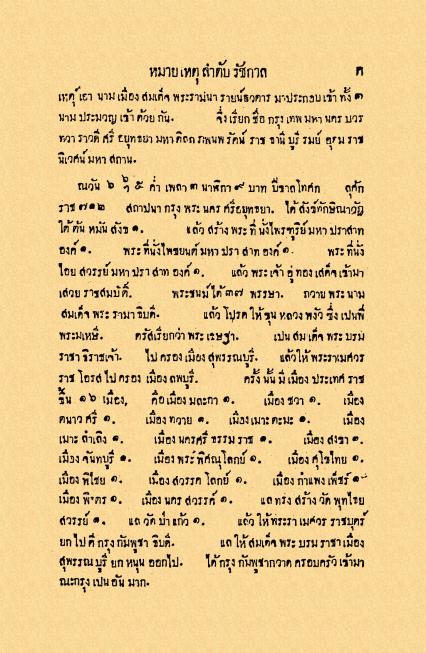 หมายเหตุลำดับรัชกาล ๓
เหตุ์เอา นาม เมือง สมเด็จ พระรามันา รายน์อวตาร มาประกอบเข้า ทั้ง ๓
นาม ประมวญ เข้า ด้วย กัน. จึ่ง เรียก ชื่อ กรุง เทพ มหา นคร บวร
ทวา ราวดี ศรี อยุทธยา มหา ดิลก ภพนพ รัตน์ ราช ธานี บูรี รมย์ อุดม ราช
นิเวศน์ มหา สถาน.
ณวัน ๖ ๖ ๕ ค่ำ เพลา ๓ นาฬิกา ๙ บาท ปีขาลโทศก ศุศัก
ราช ๗๑๒ สถาปนา กรุง พระ นคร ศรีอยุทธยา. ได้ สังข์ทักษิณาวัฏ
ใต้ ต้น หมัน สังข ๑. แล้ว สร้าง พระ ที่ นั่งไพรฑูริย์ มหา ปราสาท
องค์ ๑. พระ ที่นั่งไพชยนต์ มหา ปรา สาท องค์ ๑. พระ ที่นั่ง
ไอย สวรรย์ มหา ปรา สาท องค์ ๑. แล้ว พระ เจ้า อู่ ทอง เสด็จ เข้ามา
เสวย ราชสมบัติ. พระชนม์ ได้ ๓๗ พรรษา. ถวาย พระ นาม
สมเด็จ พระ รามา ธิบดี. แล้ว โปรด ให้ ขุน หลวง พงัว ซึ่ง เปนพี่
พระมเหษี. ตรัสเรียกว่า พระ เชษฐา. เปน สม เด็จ พระ บรม
ราชา ธิราชเจ้า. ไป ครอง เมือง สุพรรณบูรี. แล้วให้ พระราเมศวร
ราช โอรส ไป ครอง เมือง ลพบูรี. ครั้ง นั้น มี เมือง ประเทศ ราช
ขึ้น ๑๖ เมือง, คือ เมือง มละกา ๑. เมือง ชวา ๑. เมือง
ตนาว ศรี ๑. เมือง ทวาย ๑. เมือง เมาะ ตะมะ ๑. เมือง
เมาะ ลำเลิง ๑. เมือง นครศรี ธรรม ราช ๑. เมือง สงขลา ๑.
เมือง จันทบูรี ๑. เมือง พระ พิศณุโลกย์ ๑. เมือง ศุโขไทย ๑.
เมือง พิไชย ๑. เมือง สวรรค โลกย์ ๑. เมือง กำแพง เพ็ชร์ ๑
เมือง พิจิตร ๑. เมือง นคร สวรรค์ ๑. แล ทรง สร้าง วัด พุทไธย
สวรรย์ ๑. แล วัด ป่า แก้ว ๑. แล้ว ให้ พระรา เมศวร ราชบุตร์
ยก ไป ตี กรุง กัมพูชา ธิบดี. แล ให้ สมเด็จ พระ บรม ราชา เมือง
สุพรรณ บูรี ยก หนุน ออกไป. ได้ กรุง กัมพูชากวาด ครอบครัว เข้ามา
ณะกรุง เปน อัน มาก.